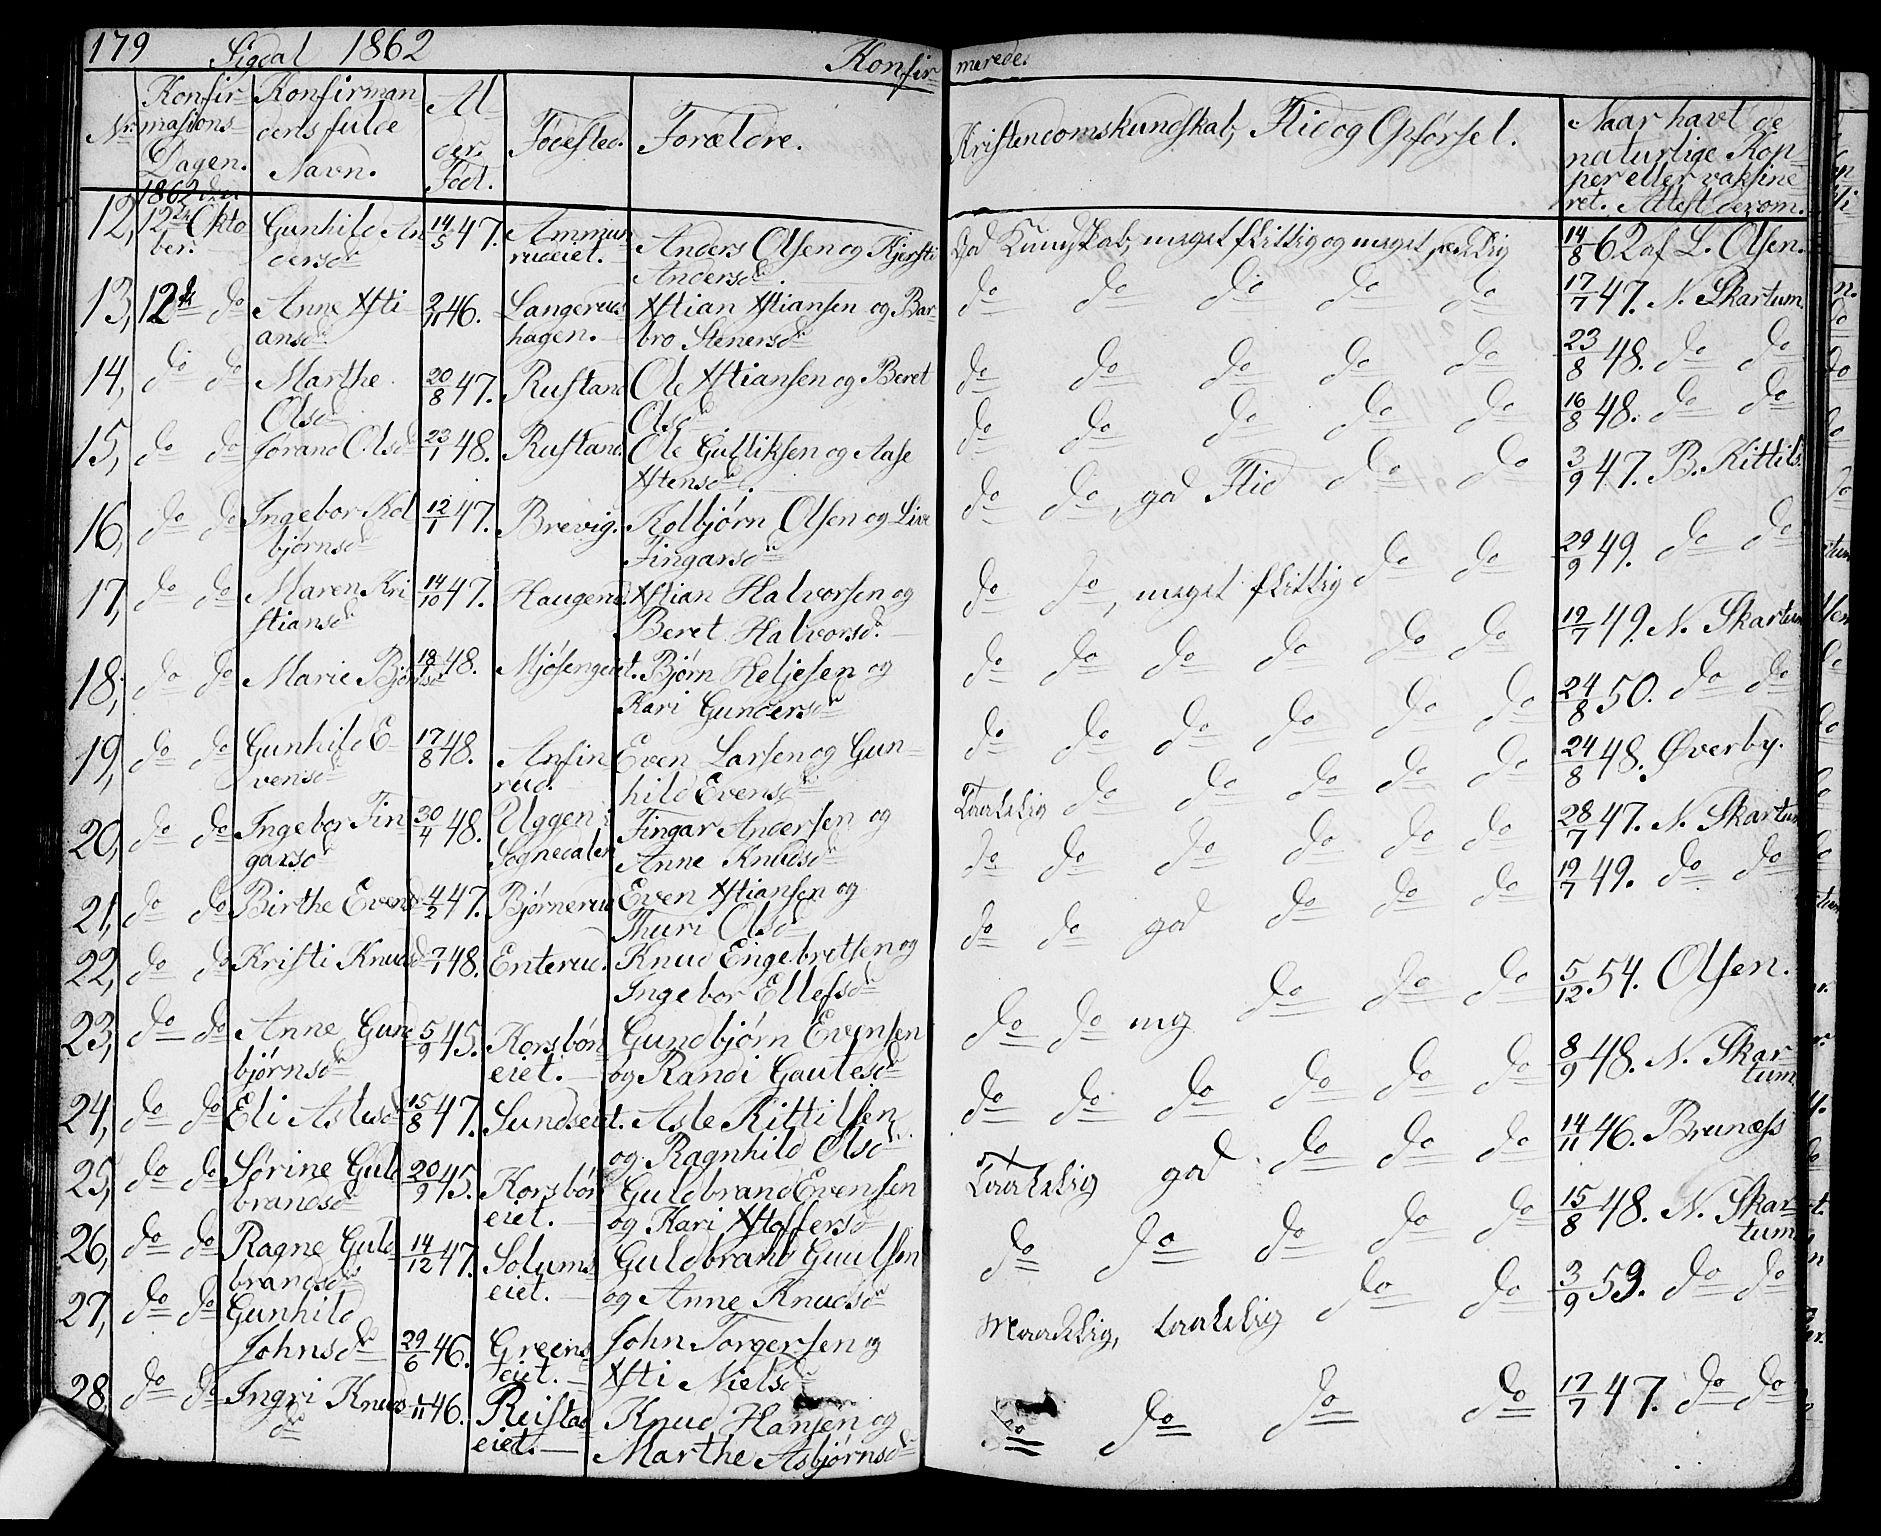 179 Sigdal 1862 Konfirmerede.
Nr. Konfirmasions-Dagen. Konfirmandens fulde Navn. Alder. Født. Fødested. Forældre. Kristendomskundskab, Flid og Opførsel. Naar havt de naturlige Kopper eller vaksineret. Attest derom.
1862 den
12, 12te Oktober. Gunhild Andersd. 14/5 47. Ammunrudeiet. Anders Olsen og Kjersti Andersd. God Kundskab, meget flittig og meget sædelig 14/8 62 af L. Olsen.
13, 12te do Anne Xstiansd. 2/11 46. Langerudshagen. Xstian Xstiansen og Barbro Stenersd. do do do do do 17/7 47. N. Skartum.
14, do do Marthe Olsd 20/8 47. Rustand Ole Xstiansen og Beret Olsd do do do do do 23/8 48. do do
15, do do Jorand Olsd 23/1 48. Rustand. Ole Gulliksen og Aase Xstensd. do do do do do 16/8 48. do do
16, do do Ingebor Kolbjørnsd 12/1 47. Brevig. Kolbjørn Olsen og Live Fingarsd do do, god Flid do do 3/9 47. B. Kittils.
17, do do Maren Kristiansd 14/10 47. Haugene. Xstian Halvorsen og Beret Halvorsd. do do, meget flittig do do 29/9 49. do do
18, do do Marie Bjørnsd 48. Mjøsengeiet. Bjørn Heljesen og Kari Gundersd do do do do do do 19/7 49. N. Skartum
19, do do Gunhild Evensd 17/8 48. Anfinrud. Even Larsen og Gunhild Evensd do do do do do do 24/8 50. do do
20, do do Ingebor Fingarsd 30/4 48. Uggen i Sognedalen Fingar Andersen og Anne Knudsd Taalelig do do do do do 24/8 48. Øverby.
21, do do Birthe Evensd 4/2 47. Bjørnerud Even Xstiansen og Thuri Olsd do do do do do do 28/7 47. N. Skartum
22, do do Kristi Knudsd 7/1 48. Enterud. Knud Engebretsen og Ingebor Ellefsd do do god do do do 19/7 49. do do
23, do do Anne Gundbjørnsd 5/9 45. Korsbøneiet. Gundbjørn Evensen og Randi Gautesd do do mg do do do 5/12 54. Olsen.
24, do do Eli Aslesd 15/8 47. Sundseiet. Asle Kittilsen og Ragnhild Olsd. do do do do do do 8/9 48. N. Skartum
25, do do Sørine Guldbrandsd 20/9 45. Korsbøneiet. Guldbrand Evensen og Kari Xstoffersd Taalelig god do do do 14/11 46. Brunæss
26, do do Ragne Guldbrandsd 14/12 47. Solumseiet. Guldbrand Guulsen og Anne Knudsd do do do do do 15/8 48. N. Skartum
27, do do Gunhild Johnsd 29/6 46. Greensseiet. John Torgersen og Xsti Nielsd Maadelig, taalelig do do 3/9 59. do do
28, do do Ingri Knudsd 11 46. Reistadeiet. Knud Hansen og Marthe Asbjørnsd do do do do 17/7 47. do do